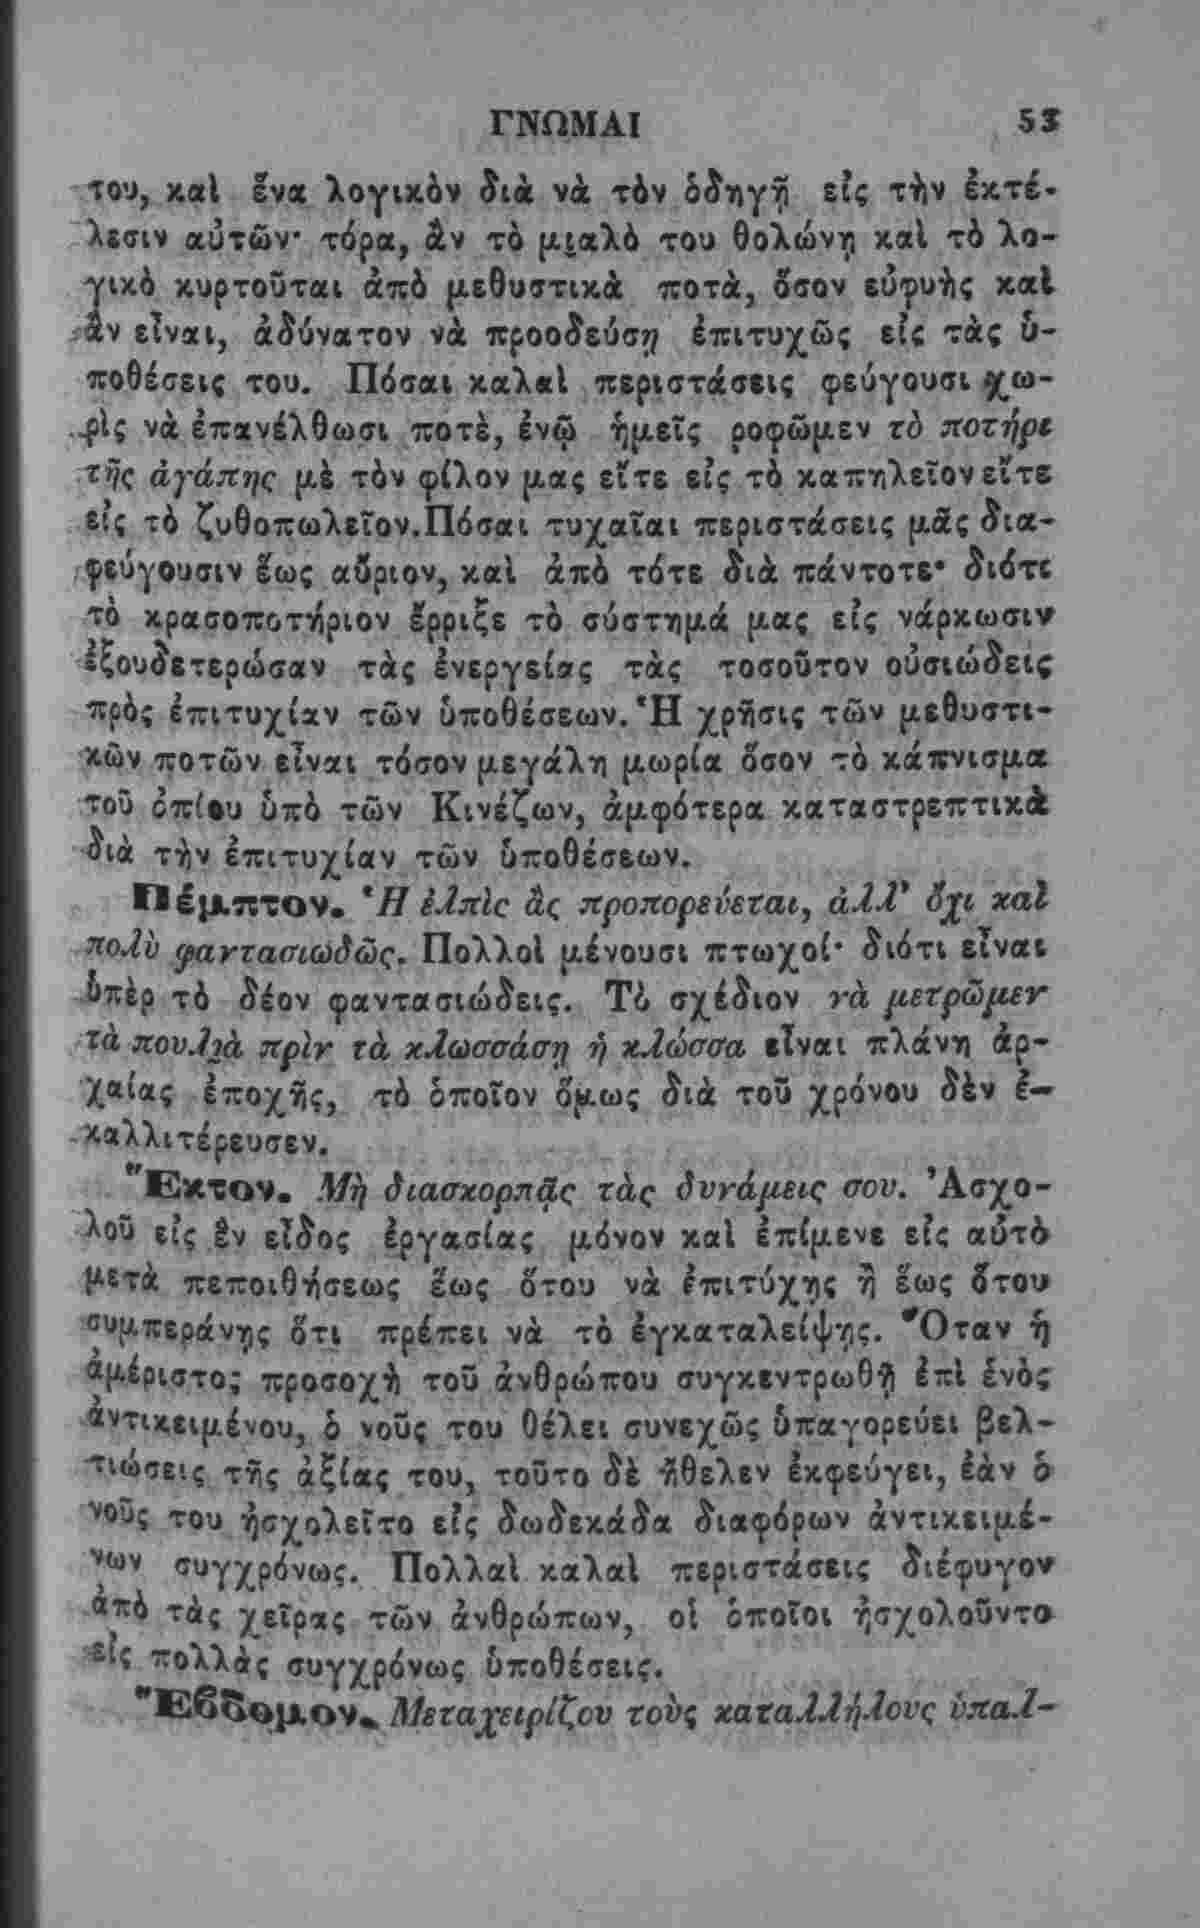 ΓΝΩΜΑΙ 53
του, καὶ ἕνα λογικὸν διὰ νὰ τὸν ὁδηγῇ εἰς τὴν ἐκτέ-
λεσιν αὐτῶν· τόρα, ἂν τὸ μιαλὸ του θολώνῃ καὶ τὸ λο-
γικὸ κυρτοῦται ἀπὸ μεθυστικὰ ποτὰ, ὅσον εὐφυὴς καὶ
ἂν εἶναι, ἀδύνατον νὰ προοδεύσῃ ἐπιτυχῶς εἰς τὰς ὑ-
ποθέσεις του. Πόσαι καλαὶ περιστάσεις φεύγουσι χω-
ρὶς νὰ ἐπανέλθωσι ποτὲ, ἐνῷ ἡμεῖς ροφῶμεν τὸ ποτήρι
τῆς ἀγάπης μὲ τὸν φίλον μας εἴτε εἰς τὸ καπηλεῖον εἴτε
εἰς τὸ ζυθοπωλεῖον. Πόσαι τυχαῖαι περιστάσεις μᾶς δια-
φεύγουσιν ἕως αὔριον, καὶ ἀπὸ τότε διὰ πάντοτε· διότι
τὸ κρασοποτήριον ἔρριξε τὸ σύστημά μας εἰς νάρκωσιν
ἐξουδετερώσαν τὰς ἐνεργείας τὰς τοσοῦτον οὐσιώδεις
πρὸς ἐπιτυχίαν τῶν ὑποθέσεων. Ἡ χρῆσις τῶν μεθυστι-
κῶν ποτῶν εἶναι τόσον μεγάλη μωρία ὅσον τὸ κάπνισμα
τοῦ ὀπίου ὑπὸ τῶν Κινέζων, ἀμφότερα καταστρεπτικὰ
διὰ τὴν ἐπιτυχίαν τῶν ὑποθέσεων.
Πέμπτον. Ἡ ἐλπὶς ἂς προπορεύεται, ἀλλ' ὄχι καὶ
πολὺ φαντασιωδῶς. Πολλοὶ μένουσι πτωχοί· διότι εἶναι
ὑπὲρ τὸ δέον φαντασιώδεις. Τὸ σχέδιον νὰ μετρῶμεν
τὰ πουλιὰ πρὶν τὰ κλωσσάσῃ ἡ κλώσσα εἶναι πλάνη ἀρ-
χαίας ἐποχῆς, τὸ ὁποῖον ὅμως διὰ τοῦ χρόνου δὲν ἐ-
καλλιτέρευσεν.
Ἕκτον. Μὴ διασκορπᾷς τὰς δυνάμεις σου. Ἀσχο-
λοῦ εἰς ἓν εἶδος ἐργασίας μόνον καὶ ἐπίμενε εἰς αὐτὸ
μετὰ πεποιθήσεως ἕως ὅτου νὰ ἐπιτύχῃς ἢ ἕως ὅτου
συμπεράνῃς ὅτι πρέπει νὰ τὸ ἐγκαταλείψῃς. Ὅταν ἡ
ἀμέριστος προσοχὴ τοῦ ἀνθρώπου συγκεντρωθῇ ἐπὶ ἑνὸς
ἀντικειμένου, ὁ νοῦς του θέλει συνεχῶς ὑπαγορεύει βελ-
τιώσεις τῆς ἀξίας του, τοῦτο δὲ ἤθελεν ἐκφεύγει, ἐὰν ὁ
νοῦς του ἠσχολεῖτο εἰς δωδεκάδα διαφόρων ἀντικειμέ-
νων συγχρόνως. Πολλαὶ καλαὶ περιστάσεις διέφυγον
ἀπὸ τὰς χεῖρας τῶν ἀνθρώπων, οἱ ὁποῖοι ἠσχολοῦντο
εἰς πολλὰς συγχρόνως ὑποθέσεις.
Ἕβδομον. Μεταχειρίζου τοὺς καταλλήλους ὑπαλ-